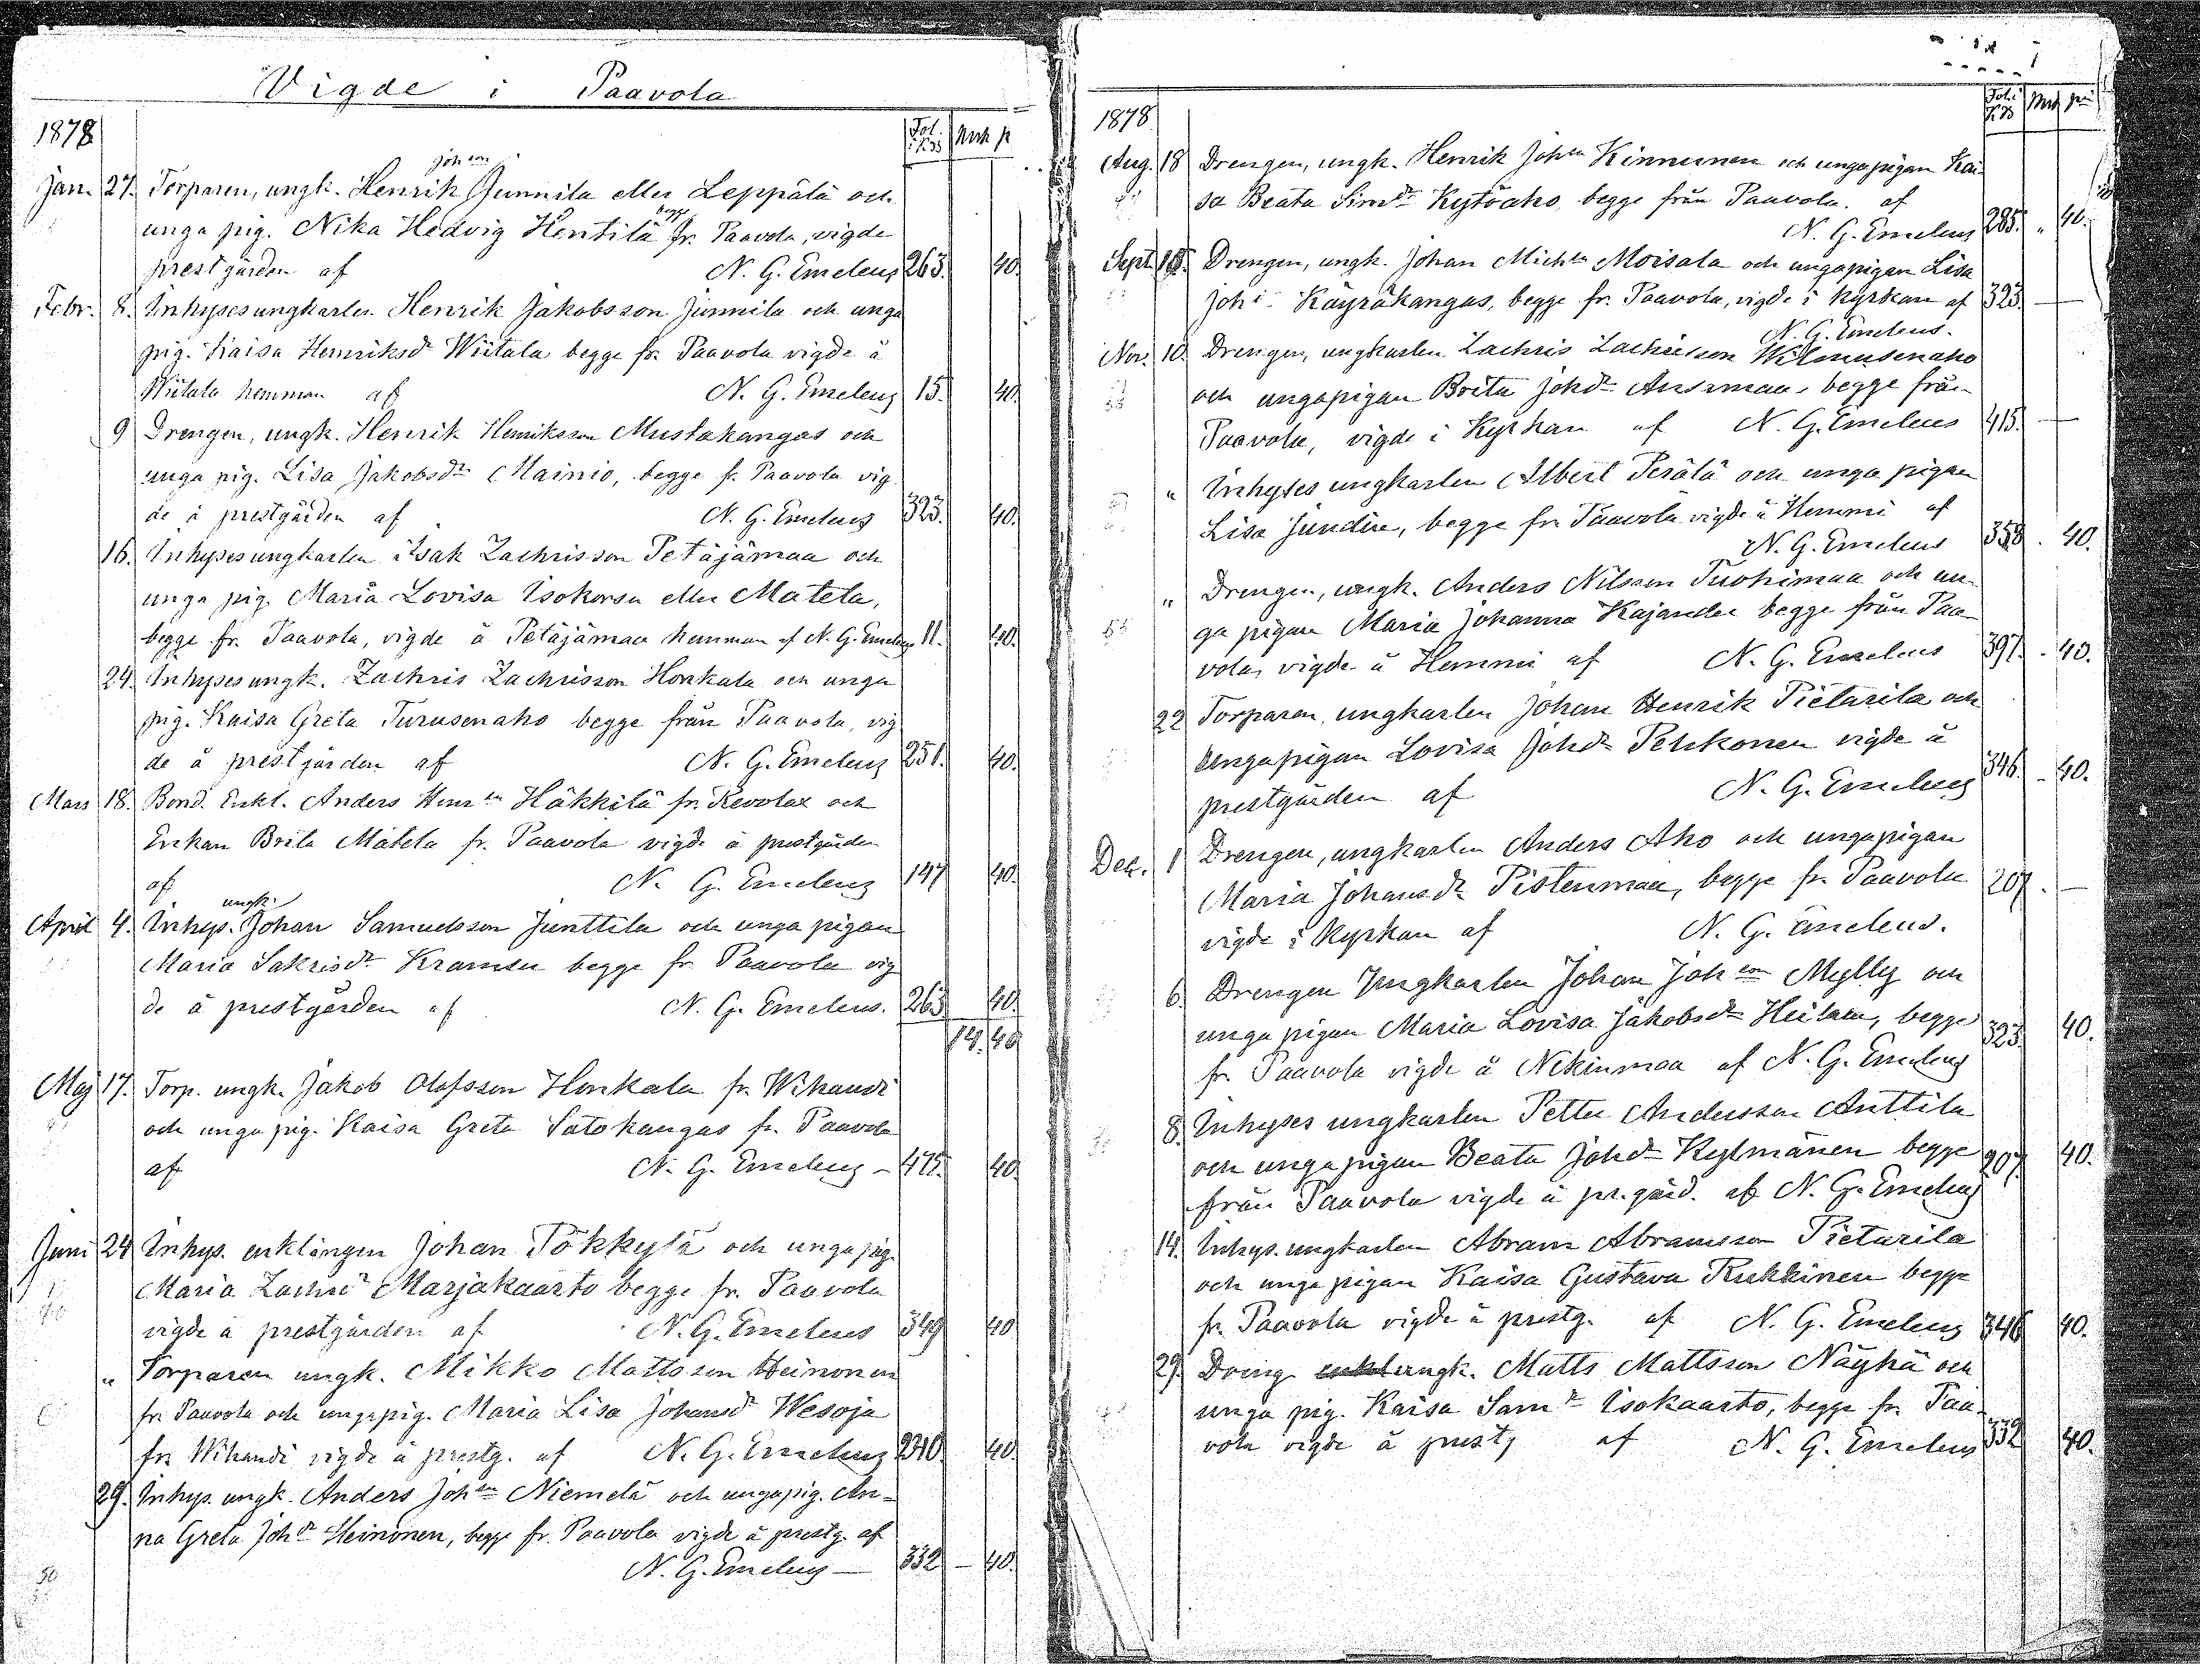 Vigde i Paavola
1878 Fol. i K.B. Mrk p
Joh son
Jan. 27. Torparen, ungk. Henrik Junnila eller Leppälä och
unga pig. Nika Hedvig Hentilä begge fr. Paavola, vigde
prestgården af N. G. Emeleus 263. 40.
Febr. 8. Inhysesungkarlen Henrik Jakobsson Junnila och unga
pig. Kaisa Henriksdr Wiitala begge fr. Paavola vigde å
Wiitala hemman af N. G. Emeleus 15. 40.
9 Drengen, ungk. Henrik Henriksson Mustakangas och
unga pig. Lisa Jakobsdr Mainio, begge fr. Paavola vig
de å prestgården af N. G. Emeleus 323. 40.
16. Inhysesungkarlen Isak Zachrisson Petäjämaa och
unga pig. Maria Lovisa Isokorsu eller Matela,
begge fr. Paavola, vigde å Petäjämaa hemman af N. G. Emeleus 11. 40.
24. Inhysesungk. Zachris Zachrisson Honkala och unga
pig. Kaisa Greta Turusenaho begge från Paavola, vig
de å prestgården af N. G. Emeleus 251. 40.
Mars 18. Bond. Enkl. Anders Henr sn Häkkilä fr. Revolax och
Enkan Brita Matela fr. Paavola vigde å prestgården
af N. G. Emeleus 147 40.
ungk.
April 4. Inhys. Johan Samuelsson Junttila och unga pigan
Maria Sakrisdr Kramsu begge fr. Paavola vig
de å prestgården af N. G. Emeleus. 263 40.
14. 40
Maj 17. Torp. ungk. Jakob Olofsson Honkala fr. Wihandi
och unga pig. Kaisa Greta Satokangas fr. Paavola
af N. G. Emeleus – 475. 40.
Juni 24 Inhys. enklingen Johan Tökkylä och unga pig.
Maria Zachrd Marjakaarto begge fr. Paavola
vigde å prestgården af N. G. Emeleus 349 40
" Torparen ungk. Mikko Mattsson Heinonen
fr. Paavola och unga pig. Maria Lisa Johansdr Wesoja
fr. Wihandi vigde å prestg. af N. G. Emeleus 40.
29. Inhys. ungk. Anders Joh sn Niemelä och unga pig. An=
na Greta Joh dr Heinonen, begge fr. Paavola vigde å prestg. af
N. G. Emeleus — 332 — 40.
1878. Fol. i K.B. Mrk pi
Aug. 18 Drengen, ungk. Henrik Joh sn Kinnunen och ungapigan Kai-
sa Beata Simdr Kytöaho, begge från Paavola. af
N. G. Emeleus 285. " 40.
Sept. Drengen, ungk. Johan Mich sn Moisala och ungapigan Lisa
Joh Käyräkangas, begge fr. Paavola, vigde i kyrkan af 323. —
N. G. Emeleus.
Nov. 10. Drengen, ungkarlen Zachris Zachrisson Wilmusenaho
och ungapigan Brita Johdr Ansamaa, begge från
Paavola, vigde i Kyrkan af N. G. Emeleus 415. —
" Inhyses ungkarlen Albert Perälä och unga pigan
Lisa Jundin, begge fr. Paavola vigde å Hemmi af
N. G. Emeleus 358. 40.
" Drengen, ungk. Anders Nilsson Tuohimaa och un-
ga pigan Maria Johanna Kajander begge från Paa-
vola, vigde å Hemmi af N. G. Emeleus 397. - 40.
22 Torparen, ungkarlen Johan Henrik Pietarila och
Ungapigan Lovisa Johdr Pehkonen vigde å
prestgården af N. G. Emeleus 346. - 40.
Dec. 1 Drengen, ungkarlen Anders Aho och ungapigan
Maria Johansdr Pistenmaa, begge fr. Paavola 207. —
vigde i kyrkan af N. G. Emeleus.
6. Drengen Ungkarlen Johan Joh son Mylly och
unga pigan Maria Lovisa Jakobsdr Heilam, begge
fr. Paavola vigde å Nekinmaa af N. G. Emeleus 323. 40.
8. Inhyses ungkarlen Petter Andersson Anttila
och unga pigan Beata Johdr Kylmänen begge
från Paavola vigde å pr.gård. af N. G. Emeleus 207. 40.
14. Inhys. ungkarlen Abram Abramsson Pietarila
och unga pigan Kaisa Gustava Rukkinen begge
fr. Paavola vigde å prestg. af N. G. Emeleus 346 40.
29. Dreng ungk. Matts Mattsson Näyhä och
unga pig. Kaisa Samdr Isokaarto, begge fr. Paa-
vola vigde å prestg af N. G. Emeleus 332 40.